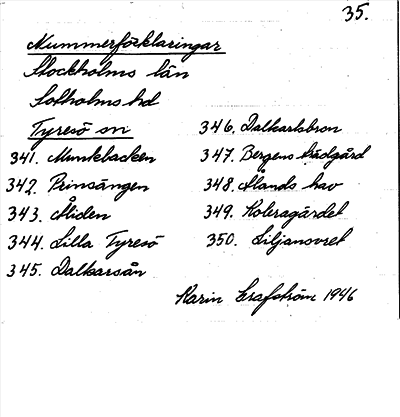 35.
Nummerförklaringar
Stockholms län
Sotholms hd
Tyresö sn
341. Munkbacken
342. Prinsängen
343. Åliden
344. Lilla Tyresö
345. Dalkarsån
346. Dalkarlsbron
347. Bergens trädgård
348. Ålands hav
349. Koleragärdet
350. Liljansvret
Karin Grafström 1946